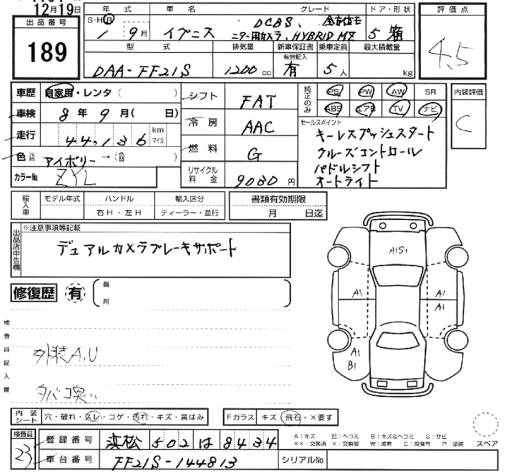 12月19日
出品番号
189
年式
S・H・R
1年9月
車名
イグニス
グレード
DCBS、全方位モ
ニター用カメラ、HYBRID MX
ドア・形状
5 箱
評価点
4.5
型式
DAA-FF21S
排気量
1200cc
新車保証書
有効記入
有
乗車定員
5人
最大積載量
kg
車歴
自家用・レンタ( )
車検
8年9月( 日)
走行
44,136
km
マイル
色
アイボリー→( )
カラーNo
ZYL
シフト
FAT
冷房
AAC
燃料
G
リサイクル
料金
9080円
純正のみ
PS PW AW SR
ABS エアB TV ナビ
セールスポイント
キーレスプッシュスタート
クルーズコントロール
パドルシフト
オートライト
内装評価
C
輸入車
モデル年式
年
ハンドル
右H・左H
輸入区分
ディーラー・並行
書類有効期限
月 日迄
出品店申告欄
※注意事項等記載
デュアルカメラブレーキサポート
修復歴
有
箇所
検査員記入欄
外装A,U
タバコ臭い
A1S1
A1
A1
A1
A1
B1
内装
シート
穴・破れ・スレ・コゲ・汚れ・キズ・黄ばみ
Fガラス
キズ・飛石・×要す
スペア
検査員
23
登録番号
浜松 502 は 8434
車台番号
FF21S-144813
シリアルNo